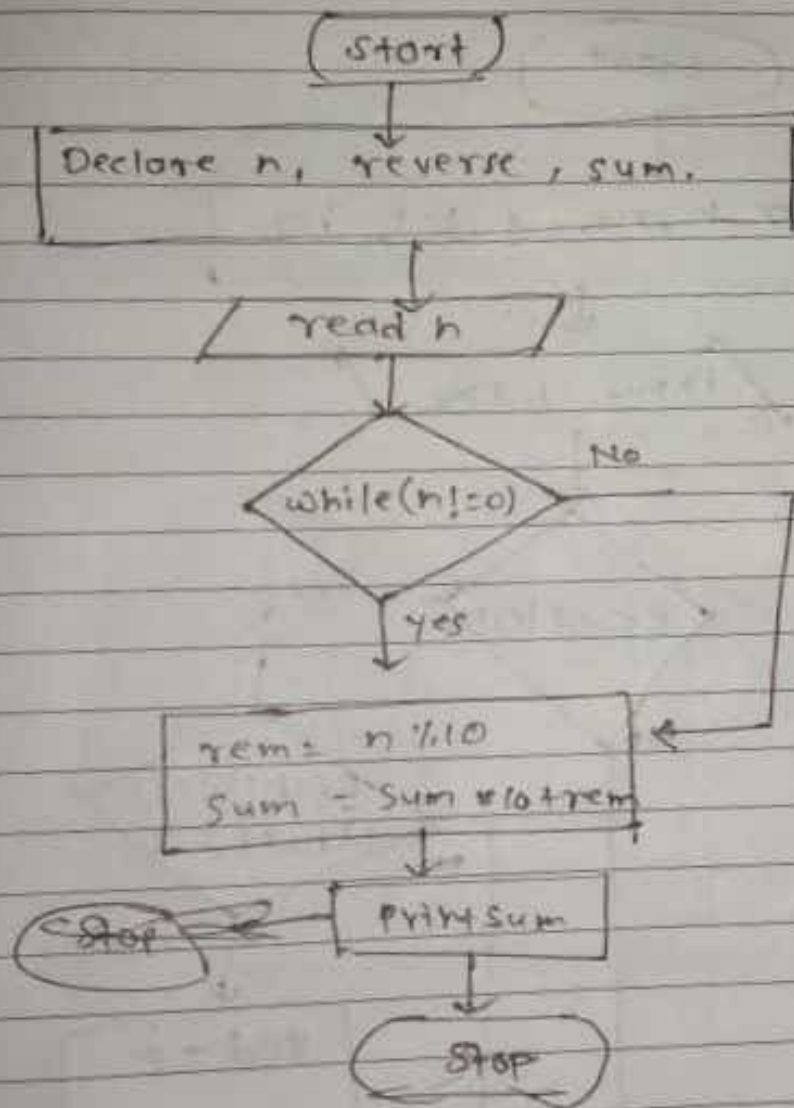 Start
Declare n, reverse, sum.
read n
while(n!=0)
No
yes
rem= n%10
Sum = Sum *10+rem
Print sum
Stop
Stop